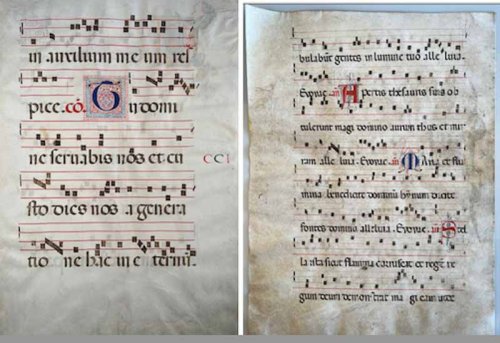 in auxilium me um res
pice. cō. Tu domi
ne servabis nos et cu
CCI
sto dies nos a genera
tio ne hac in e ternū.
bulabūt gentes in lumine tuo alle luia.
Evovae. añ Apertis thesauris suis ob
tulerunt magi domino aurum thus et mir
ram alle luia. Evovae. añ Maria et flu
mina benedicite dominū hymnum dicite
fontes domino alleluia. Evovae. añ Stel
la ista sicut flamma coruscat et regem re
gum deum demonstrat ma gi eam vide